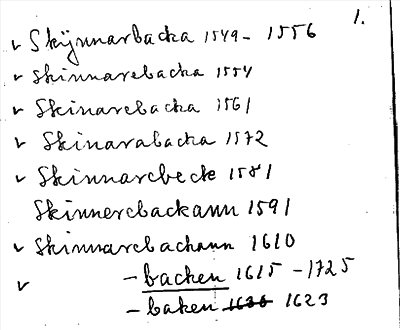 1.
v Skÿnnarbacka 1549- 1556
v Skinnarebacka 1554
v Skinarebacka 1561
v Skinarabacka 1572
v Skinnarebeck 1581
Skinnerebackann 1591
v Skinnarebackann 1610
v - backen 1615 - 1725
- baken 1636 1623